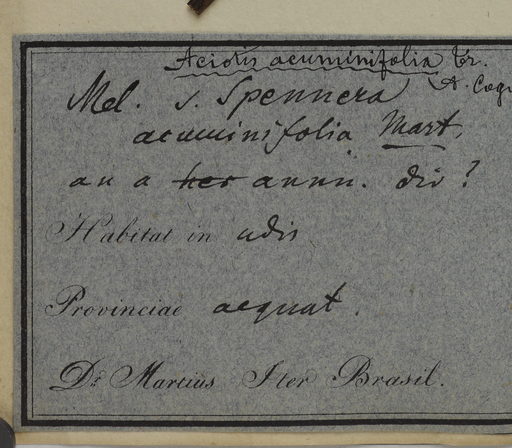 Aciotis acuminifolia Tr.
A. Cogn
Mel. s. Spennera
acuminifolia Mart.
an a her annu. div?
Habitat in udis
Provinciae aequat.
Dr. Martius Iter Brasil.